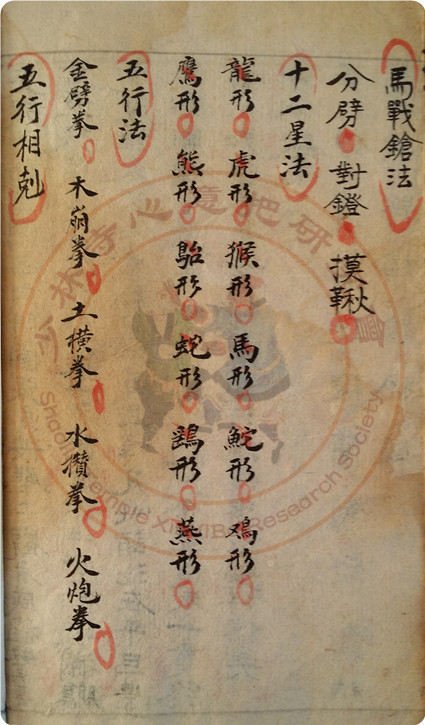 馬戰鎗法
分劈 對鐙 摸鞦
十二星法
龍形 虎形 猴形 馬形 鮀形 鸡形
鷹形 熊形 鮐形 蛇形 鷂形 燕形
五行法
金劈拳 木崩拳 土橫拳 水攢拳 火炮拳
五行相剋
少林寺心意把研 會
Shao Temple XINYIBA Research Society